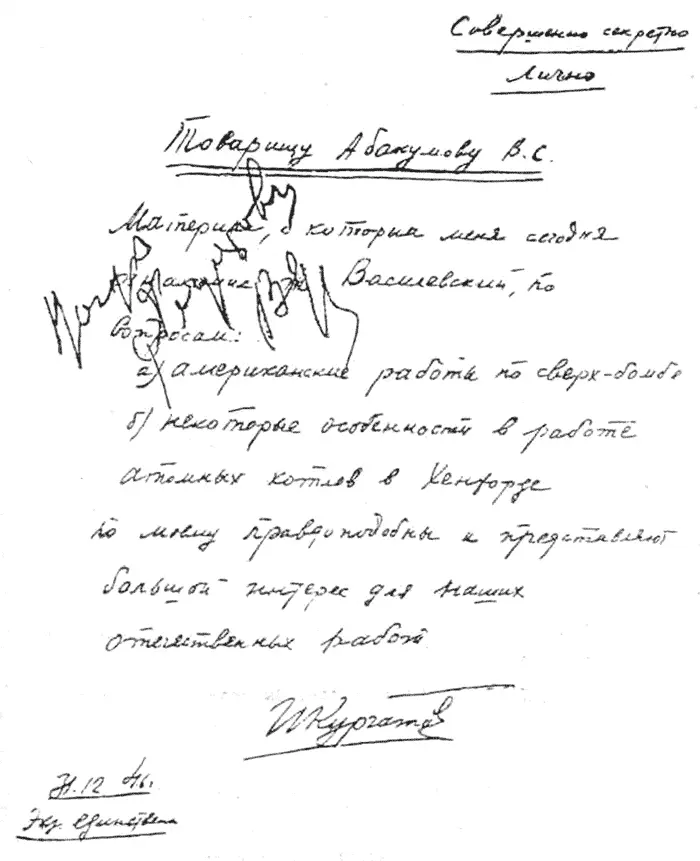 Совершенно секретно
Лично
Товарищу Абакумову В.С.
Материалы, с которыми меня сегодня
ознакомил т. Василевский, по
вопросам:
а) американские работы по сверх-бомбе
б) некоторые особенности в работе
атомных котлов в Хенфорде
по моему правдоподобны и представляют
большой интерес для наших
отечественных работ
И Курчатов
31.12 46г.
Экз. единствен